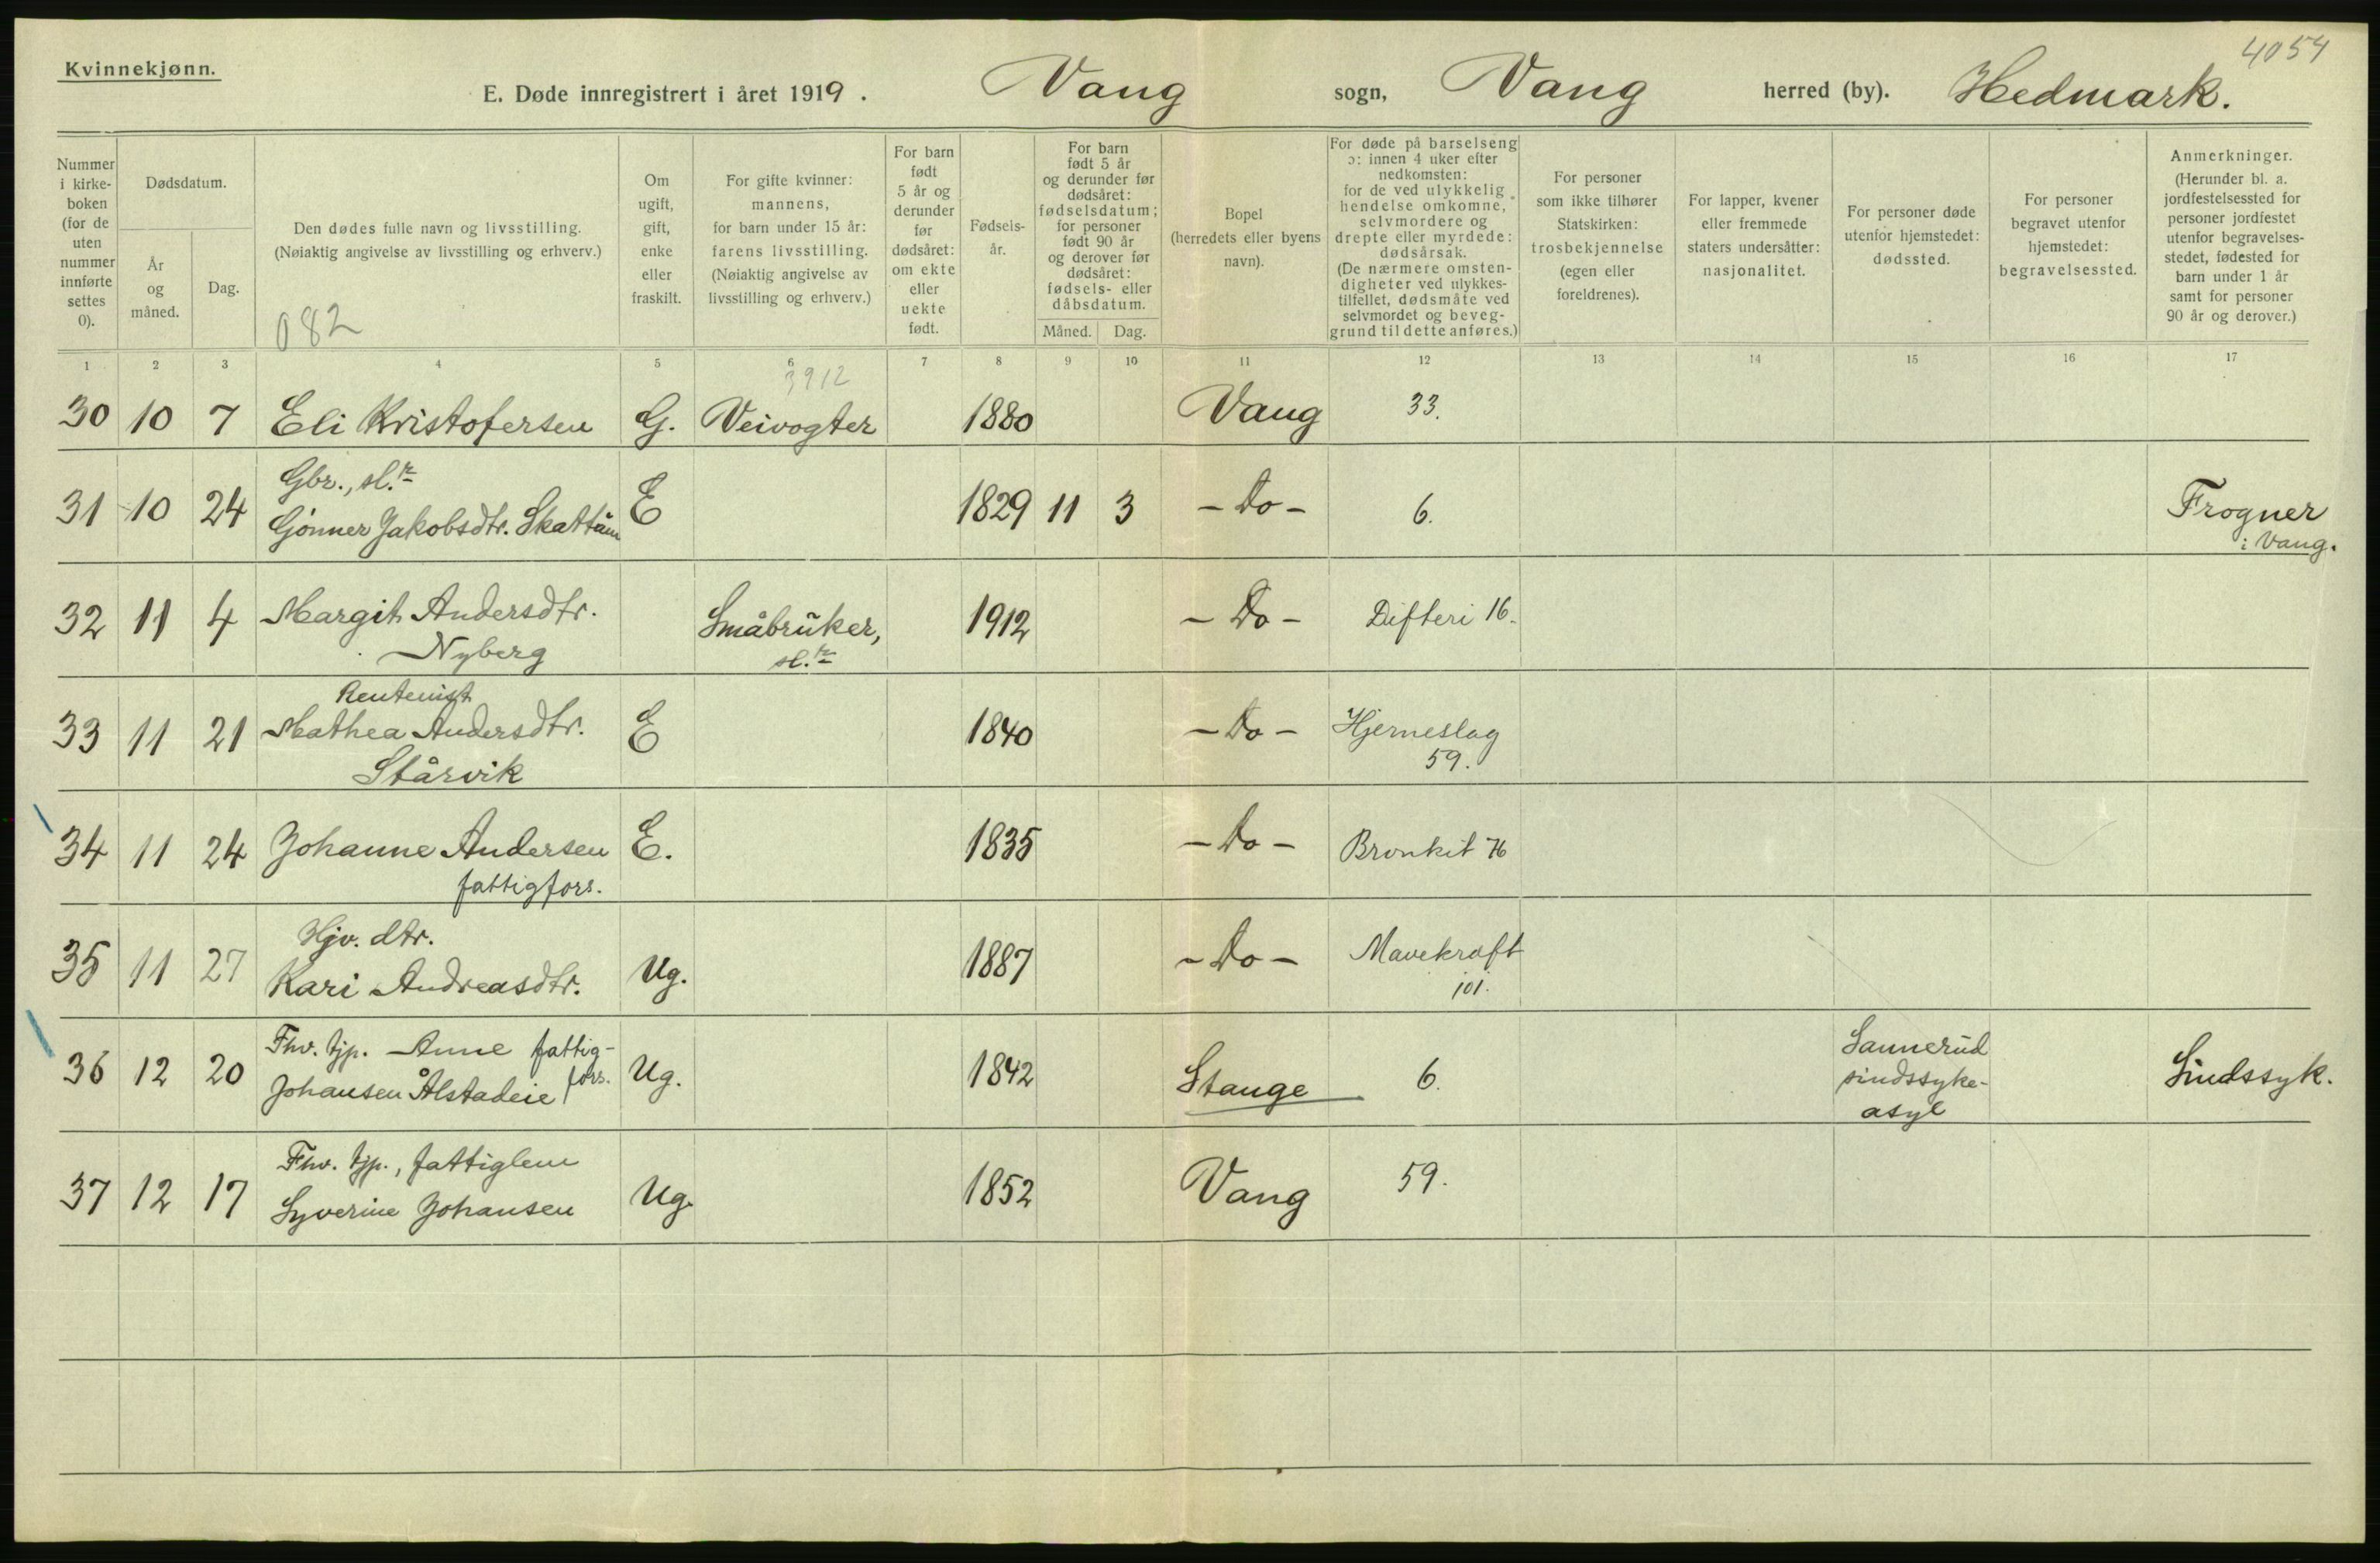 4054
Kvinnekjønn.
E. Døde innregistrert i året 1919. Vang sogn, Vang herred (by). Hedmark.
Nummer
i kirke-
boken
(for de
uten
nummer
innførte
settes
0).
Dødsdatum.
År
og
måned.
Dag.
Den dødes fulle navn og livsstilling.
(Nøiaktig angivelse av livsstilling og erhverv.)
082
Om
ugift,
gift,
enke
eller
fraskilt.
For gifte kvinner:
mannens,
for barn under 15 år:
farens livsstilling.
(Nøiaktig angivelse av
livsstilling og erhverv.)
For barn
født
5 år og
derunder
før
dødsåret:
om ekte
eller
uekte
født.
Fødsels-
år.
For barn
født 5 år
og derunder før
dødsåret:
fødselsdatum;
for personer
født 90 år
og derover før
dødsåret:
fødsels- eller
dåbsdatum.
Måned. Dag.
Bopel
(herredets eller byens
navn).
For døde på barselseng
ɔ: innen 4 uker efter
nedkomsten:
for de ved ulykkelig
hendelse omkomne,
selvmordere og
drepte eller myrdede:
dødsårsak.
(De nærmere omsten-
digheter ved ulykkes-
tilfellet, dødsmåte ved
selvmordet og beveg-
grund til dette anføres.)
For personer
som ikke tilhører
Statskirken:
trosbekjennelse
(egen eller
foreldrenes).
For lapper, kvener
eller fremmede
staters undersåtter:
nasjonalitet.
For personer døde
utenfor hjemstedet:
dødssted.
For personer
begravet utenfor
hjemstedet:
begravelsessted.
Anmerkninger.
(Herunder bl. a.
jordfestelsessted for
personer jordfestet
utenfor begravelses-
stedet, fødested for
barn under 1 år
samt for personer
90 år og derover.)
1 2 3 4 5 6 7 8 9 10 11 12 13 14 15 16 17
3912
30 10 7 Eli Kristofersen G. Veivogter 1880 Vang 33.
Gbr., sl.
31 10 24 Gønner Jakobsdtr. E 1829 11 3 - Do - 6. Frogner
i Vang.
32 11 4 Margit Andersdtr. Småbruker, 1912 - Do - Difteri 16.
Nyberg sl.
Rentenist
33 11 21 Mathea Andersdtr. E 1840 - Do - Hjerneslag
Stårvik 59.
34 11 24 Johanne Andersen E. 1835 - Do - Bronkit 76
fattigfors.
Hjv. dtr.
35 11 27 Kari Andreasdtr. Ug. 1887 - Do - Mavekræft
101.
Fhv. tjp. Anne fattig-
36 12 20 Johansen Ålstadeie fors. Ug. 1842 Stange 6. Sannerud Sindssyk.
sindssyke-
asyl
Fhv. tjp., fattiglem
37 12 17 Syverine Johansen Ug. 1852 Vang 59.